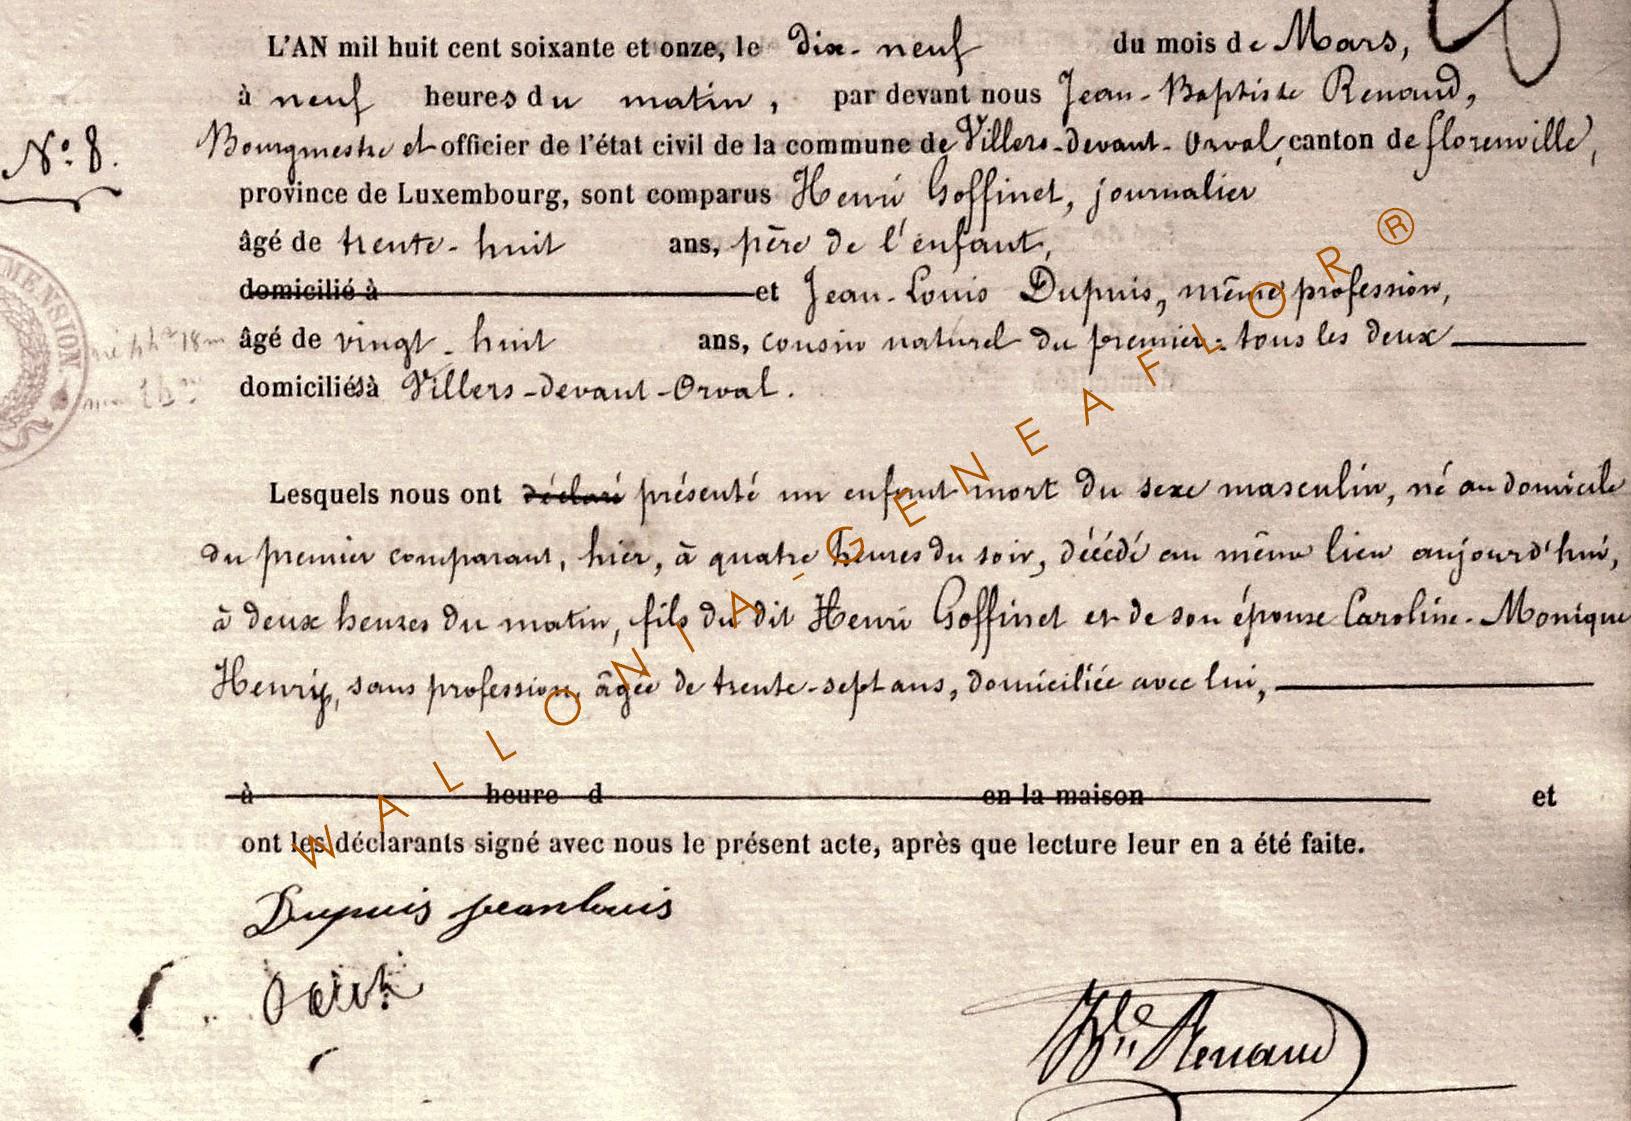 L'AN mil huit cent soixante et onze, le dix-neuf du mois de Mars,
à neuf heures du matin, par devant nous Jean-Baptiste Renaud,
N° 8. Bourgmestre et officier de l'état civil de la commune de Villers-devant-Orval, canton de florenville,
province de Luxembourg, sont comparus Henri Goffinet, journalier
âgé de trente-huit ans, père de l'enfant,
domicilié à et Jean-Louis Dupuis, même profession,
âgé de vingt-huit ans, cousin naturel du premier: tous les deux
domiciliés à Villers-devant-Orval.
MENSION
Lesquels nous ont déclaré présenté un enfant mort du sexe masculin, né au domicile
du premier comparant, hier, à quatre heures du soir, décédé au même lieu aujourd'hui,
à deux heures du matin, fils du dit Henri Goffinet et de son épouse Caroline-Monique
Henry, sans profession, âgée de trente-sept ans, domiciliée avec lui,
à heure d en la maison et
ont les déclarants signé avec nous le présent acte, après que lecture leur en a été faite.
Dupuis jeanlouis
Renaud
WALLONIA-GENEAFLOR®